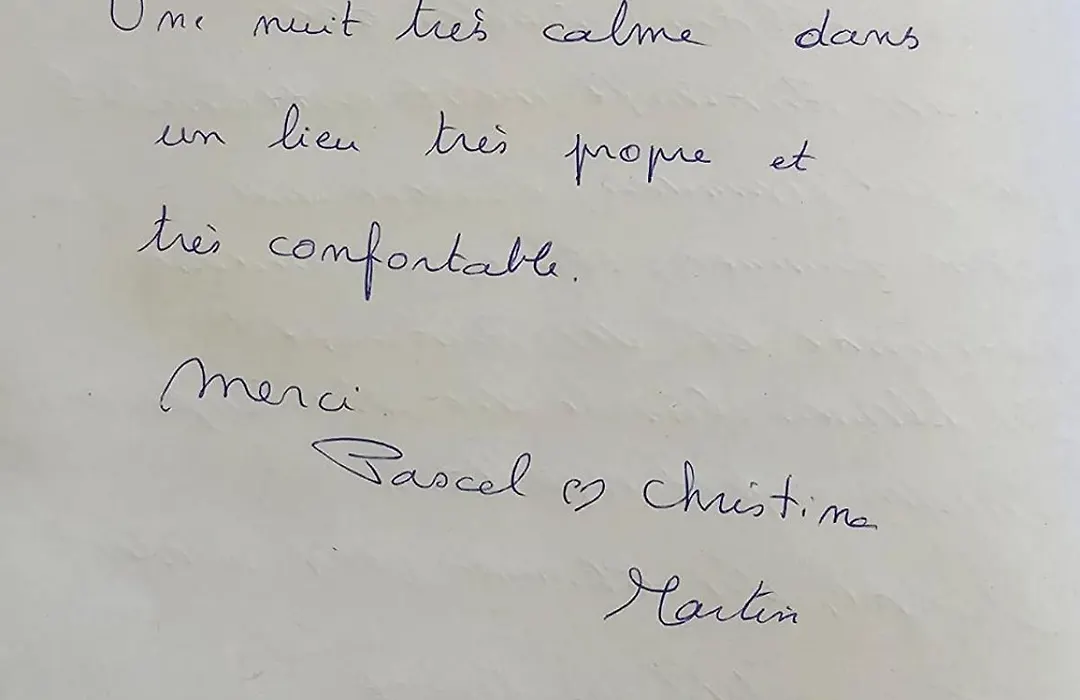 Une nuit très calme dans
un lieu très propre et
très confortable.
Merci
Pascal ♡ Christine
Martin